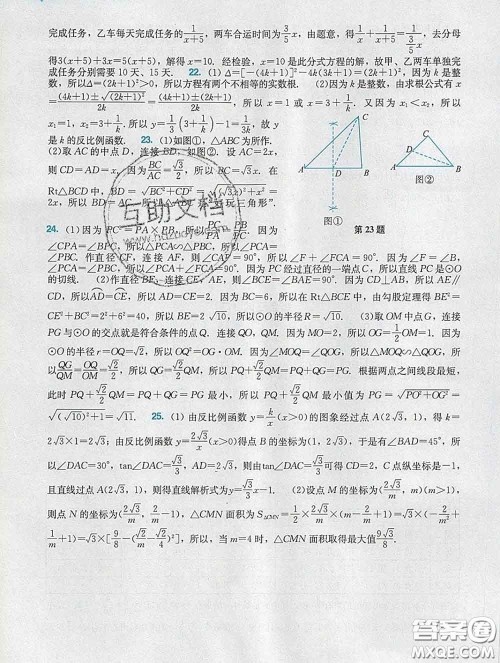 完成任务，乙车每天完成任务的1/(x+5)，两车合运时间为(3/5)x，由题意，得1/x+1/(x+5)=1/((3/5)x)，去分母
得3(x+5)+3x=5(x+5)，解得x=10. 经检验，x=10是此分式方程的解，故甲、乙两车单独完
成任务分别需要10天、15天. 22. (1)Δ=[-(4k+1)]²-4k(3k+3)=(2k-1)²，因为k是整
数，所以
所以方程有两个不相等的实数根. (2)因为
由求根公式有x
所以x=1或x=3+1/k. 又因为x₁<x₂，所以
x₁=1，x₂=3+1/k，所以y=1/3(3+1/k-1)-1=1/k，故
y是k的反比例函数. 23. (1)如图①，△ABC为所作.
(2)取AC的中点D，连接BD，如图②. 设AC=2x，
则CD=AD=x，因为BC/AC=√3/2，所以BC=√3x. 在
Rt△BCD中，BD=√(BC²+CD²)=√((√3x)²+x²)=
2x，所以AC=BD，所以△ABC是“好玩三角形”.
A D B C
图①
A B C D
图②
第23题
24. (1)因为PC²=PA×PB，所以PC/PA=PB/PC. 因为
∠CPA=∠BPC，所以△PCA∽△PBC，所以∠PCA=
∠PBC. 作直径CF，连接AF，则∠AFC=∠PBC，所以∠PCA=∠AFC. 因为∠F+∠FCA
=90°，所以∠PCA+∠FCA=90°. 因为PC经过直径的一端点C，所以直线PC是⊙O
的切线. (2)作直径BE，连接CE，AE，则∠BCE=∠BAE=90°. 因为CD⊥AB，所以AE∥
CD，所以AD=CE，所以AD=CE=2. 因为BC=6，所以在Rt△BCE中，由勾股定理得BE²=
CE²+BC²=2²+6²=40，所以BE=2√10，所以⊙O的半径R=√10. (3)取OM中点G，连接
PG与⊙O的交点就是符合条件的点Q. 连接QO，QM. 因为MO=2，所以OG=1/2OM=1. 因为
⊙O的半径r=OQ=√2，所以OQ²=OG·OM. 因为∠MOQ=∠QOG，所以△MOQ∽△QOG，所
以QG/QM=OQ/OM=√2/2，所以QG=√2/2QM，所以PQ+√2/2QM=PQ+QG=PG. 根据两点之间线段最短，
此时PQ+√2/2QM=PQ+QG=PG最小，所以PQ+√2/2QM最小值为PG=√(PO²+OG²)
=√((√10)²+1²)=√11. 25. (1)由反比例函数y=k/x(x>0)的图象经过点A(2√3，1)，得k=
2√3×1=2√3；由反比例函数y=2√3/x(x>0)得点B的坐标为(1，2√3)，于是有∠BAD=45°，所
以∠DAC=30°，tan∠DAC=√3/3，AD=2√3，则由tan∠DAC=√3/3可得CD=2，C点纵坐标是-1，
且直线过点A(2√3，1)，则得直线解析式为y=√3/3x-1. (2)设点M的坐标为(2√3/m，m)(m>1)，
则点N的坐标为(2√3/m，2/m-1)，△CMN面积为S△CMN=1/2×2√3/m×(m-2/m+1)=√3×(-2/m²
+1/m+1)=√3×[9/8-(√2/m-√2/4)²]，所以，当m=4时，△CMN面积取得最大值9√3/8.
互助文档
答案圈
MXQE.COM